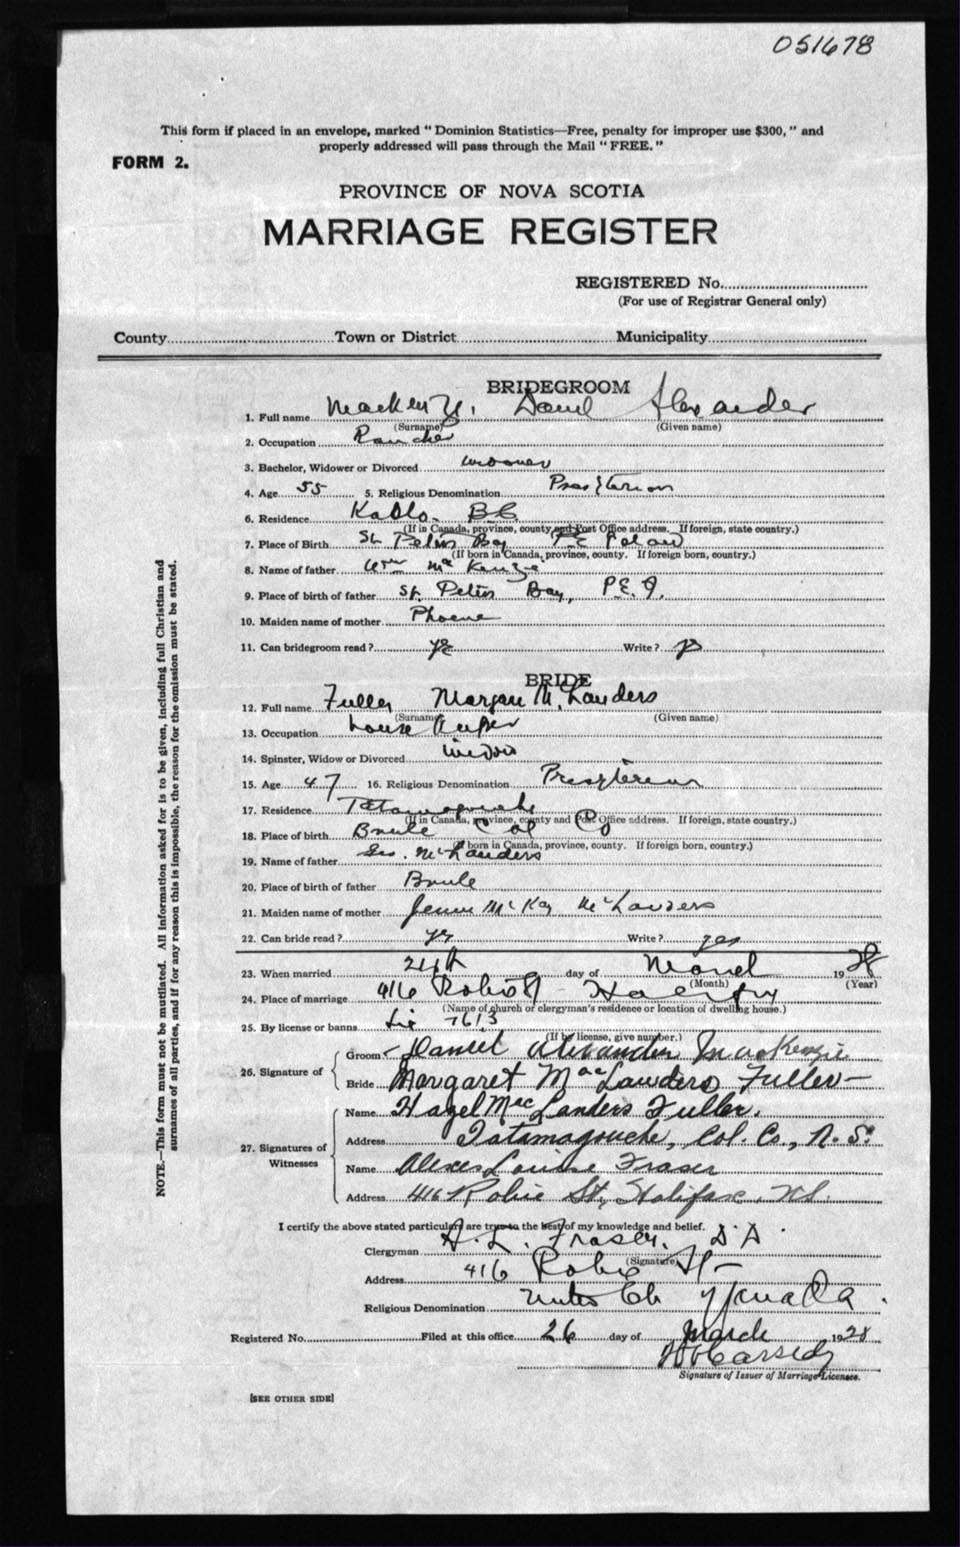 051678
This form if placed in an envelope, marked " Dominion Statistics—Free, penalty for improper use $300, " and
properly addressed will pass through the Mail " FREE. "
FORM 2.
PROVINCE OF NOVA SCOTIA
MARRIAGE REGISTER
REGISTERED No.
(For use of Registrar General only)
County Town or District Municipality
BRIDEGROOM
1. Full name Alexander
(Surname) (Given name)
2. Occupation Rancher
3. Bachelor, Widower or Divorced
4. Age 55 5. Religious Denomination
6. Residence Kaslo. BC
(If in Canada, province, county and Post Office address. If foreign, state country.)
7. Place of Birth St Peters Bay
(If born in Canada, province, county. If foreign born, country.)
8. Name of father Wm McKenzie
9. Place of birth of father St. Peters Bay, P.E.I.
10. Maiden name of mother
11. Can bridegroom read? Write?
BRIDE
12. Full name Fuller
(Surname) (Given name)
13. Occupation House Keeper
14. Spinster, Widow or Divorced Widow
15. Age 47 16. Religious Denomination Presbyterian
17. Residence Tatamagouche
(If in Canada, province, county and Post Office address. If foreign, state country.)
18. Place of birth Brule Col Co
(If born in Canada, province, county. If foreign born, country.)
19. Name of father Geo. McLanders
20. Place of birth of father Brule
21. Maiden name of mother McKay McLanders
22. Can bride read? Write? yes
23. When married day of 1928
(Month) (Year)
24. Place of marriage 416 Robie St
(Name of church or clergyman's residence or location of dwelling house.)
25. By license or banns Lic 7613
(If by license, give number.)
26. Signature of
Groom Daniel Alexander MacKenzie
Bride Margaret MacLanders Fuller
27. Signatures of Witnesses
Name Hazel MacLanders Fuller.
Address Tatamagouche, Col. Co., N.S.
Name Louise Fraser
Address 416 Robie St., Halifax, N.S.
I certify the above stated particulars are true to the best of my knowledge and belief.
Clergyman A. L. Fraser, D.D.
(Signature)
Address 416 Robie St
Religious Denomination United Ch of Canada.
Registered No. Filed at this office 26 day of March 1928
Cassedy
Signature of Issuer of Marriage Licenses.
[SEE OTHER SIDE]
NOTE.—This form must not be mutilated. All information asked for is to be given, including full Christian and
surnames of all parties, and if for any reason this is impossible, the reason for the omission must be stated.